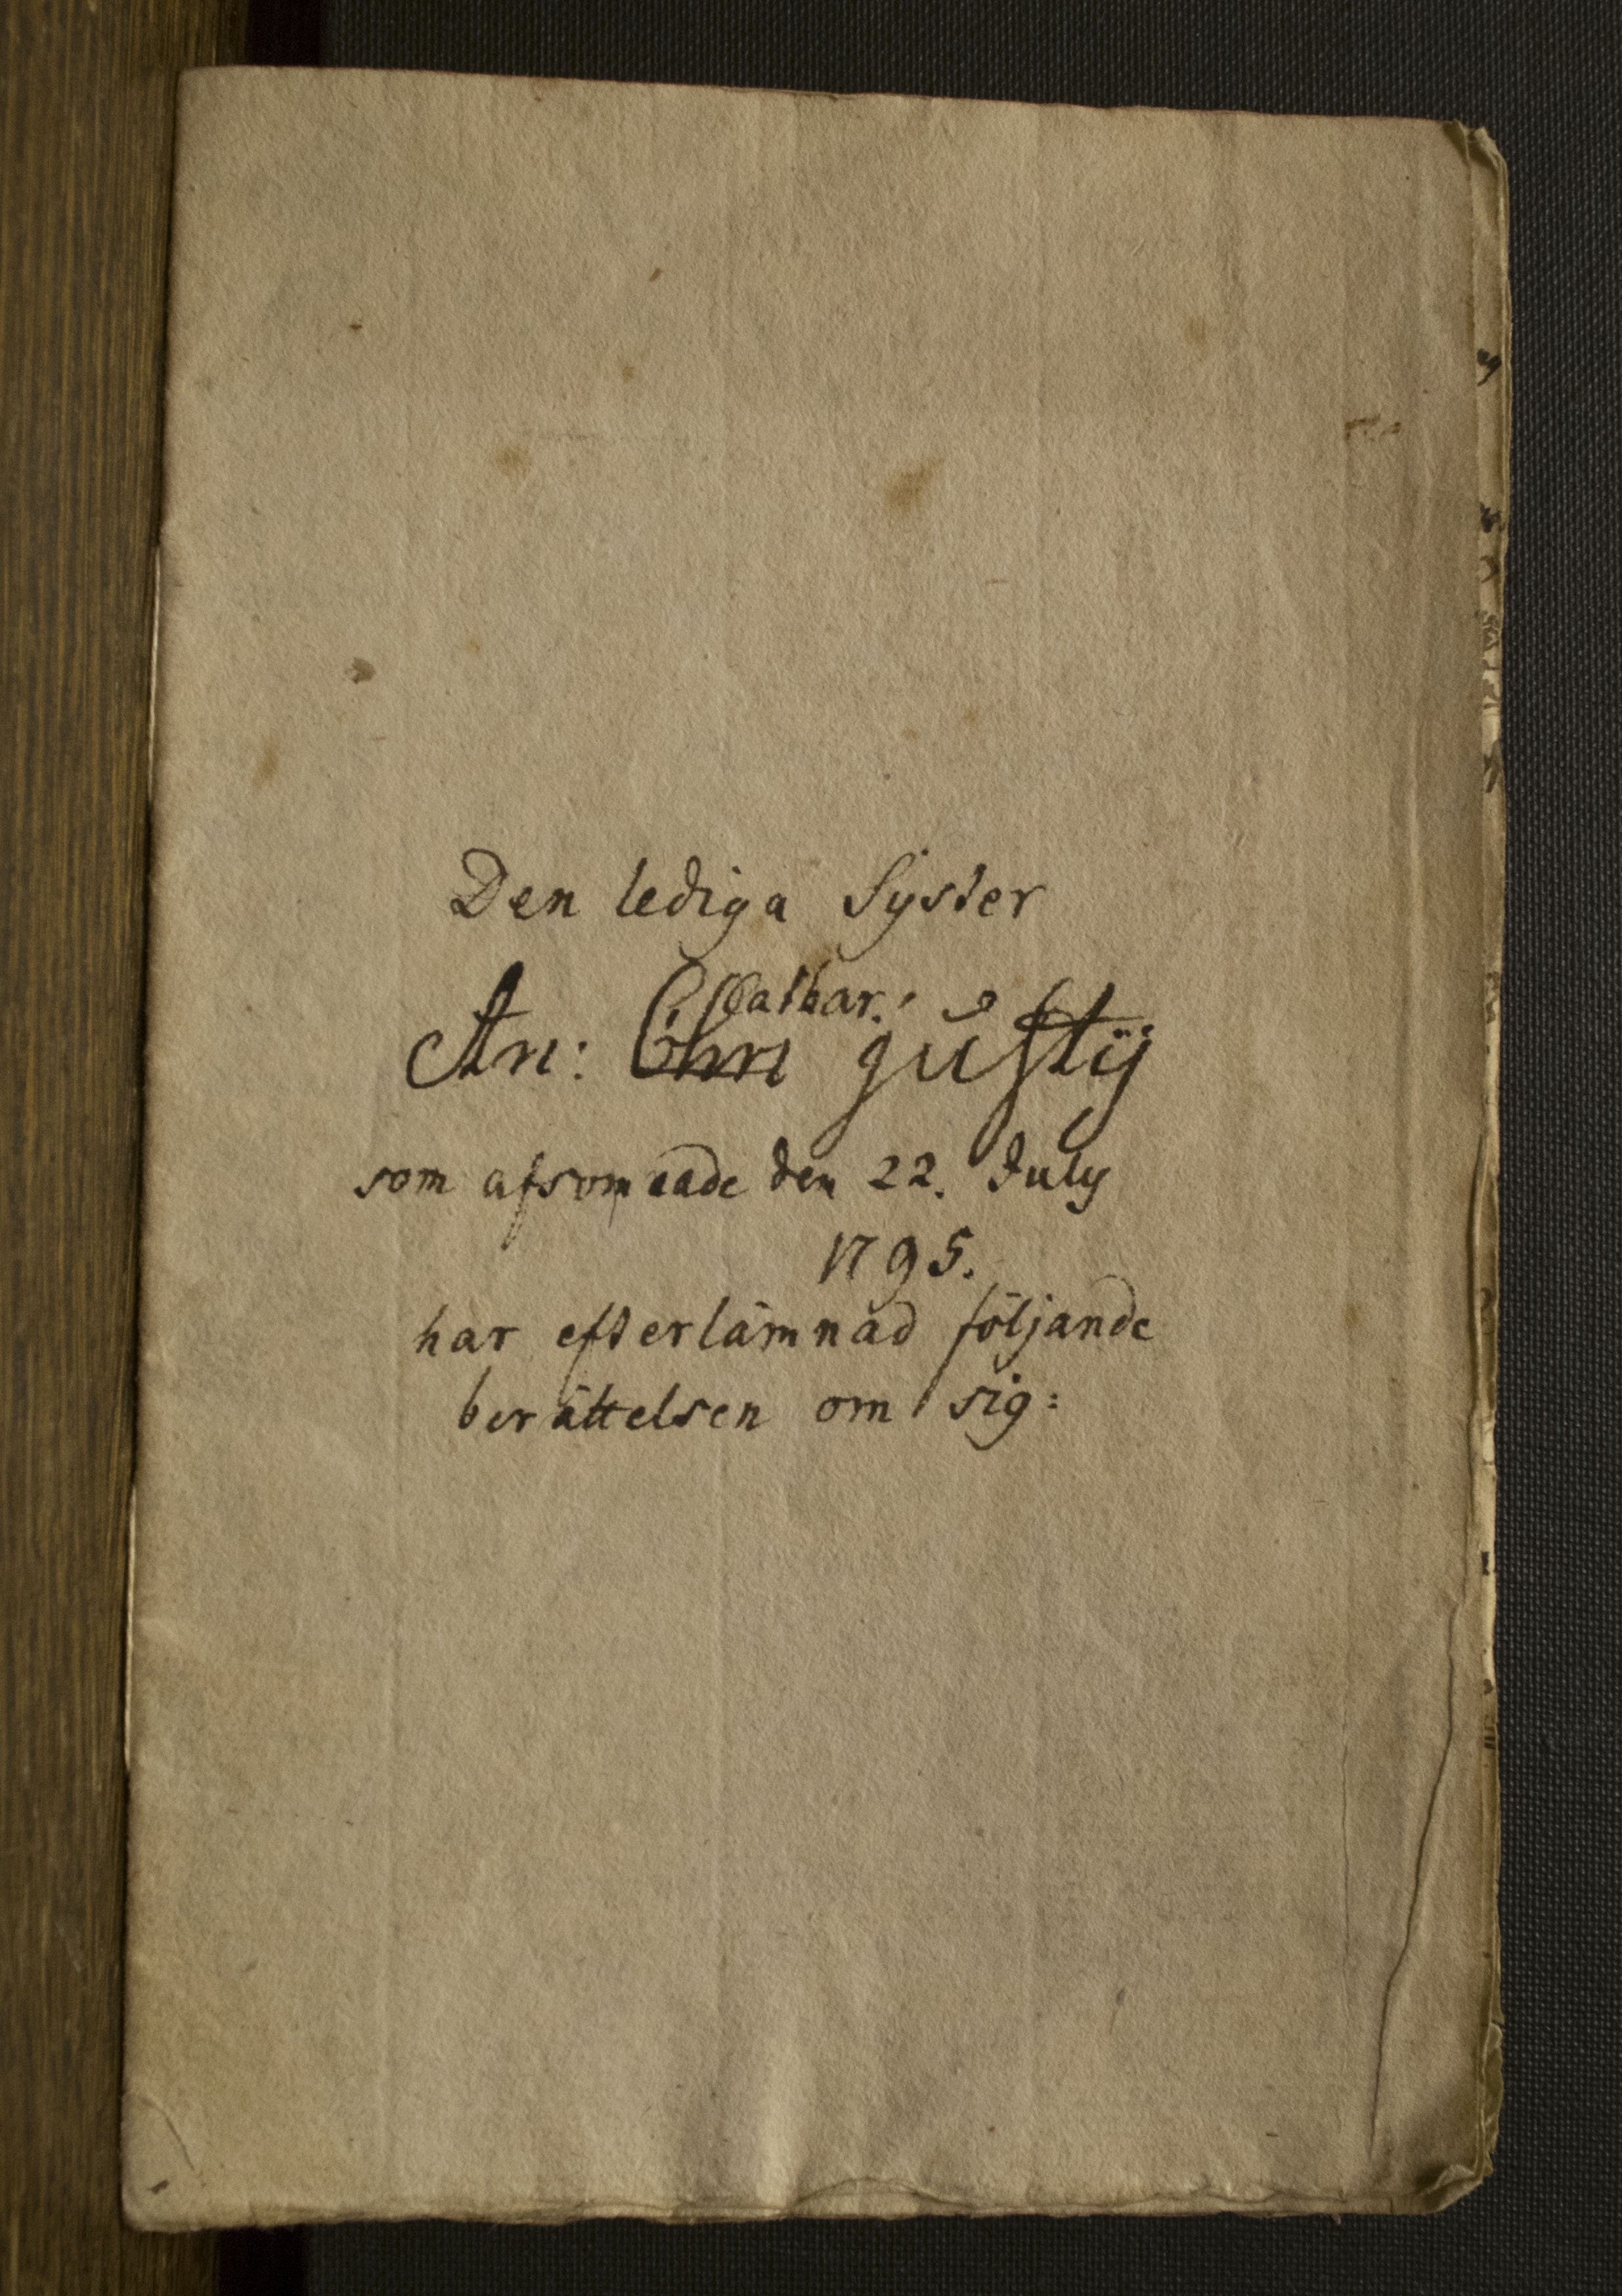 Den lediga Syster
Cathar:
An: Chri gůstÿ
som afsomnade den 22. July
1795.
har efterlämnad följande
berättelsen om sig: